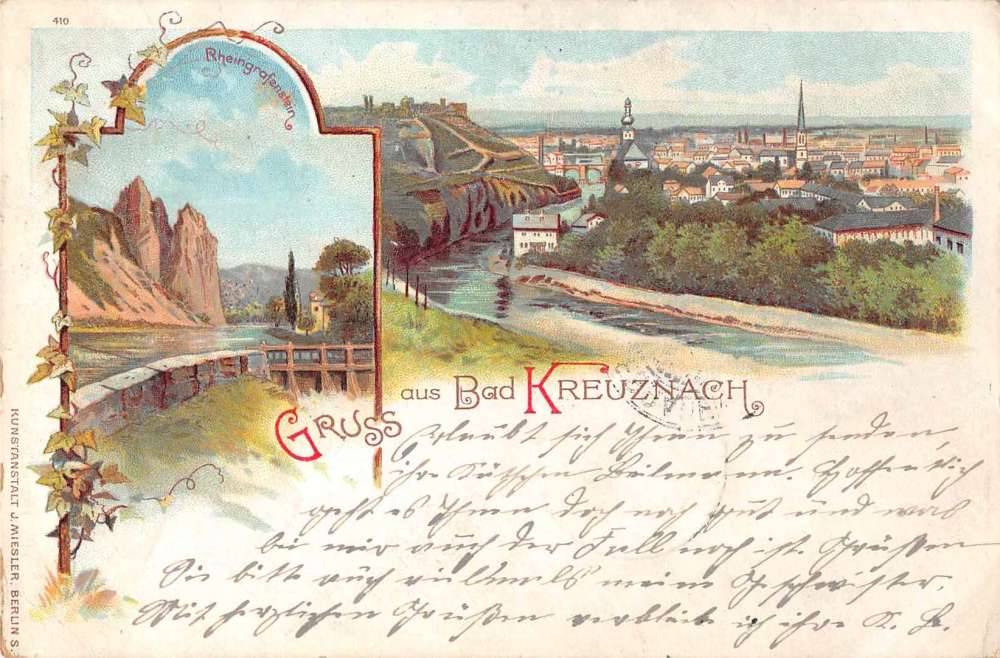 410
Rheingrafenstein
Gruss aus Bad Kreuznach
Erlaubt sich Ihnen zu senden,
ihr Käthchen Beilmann. Hoffentlich
geht es Ihnen doch noch gut und was
bei mir auch der Fall noch ist. Grüßen
Sie bitte auch vielmals meine Geschwister.
Mit herzlichen Grüßen verbleibe ich ihre K. B.
KUNSTANSTALT J. MIESLER, BERLIN S.